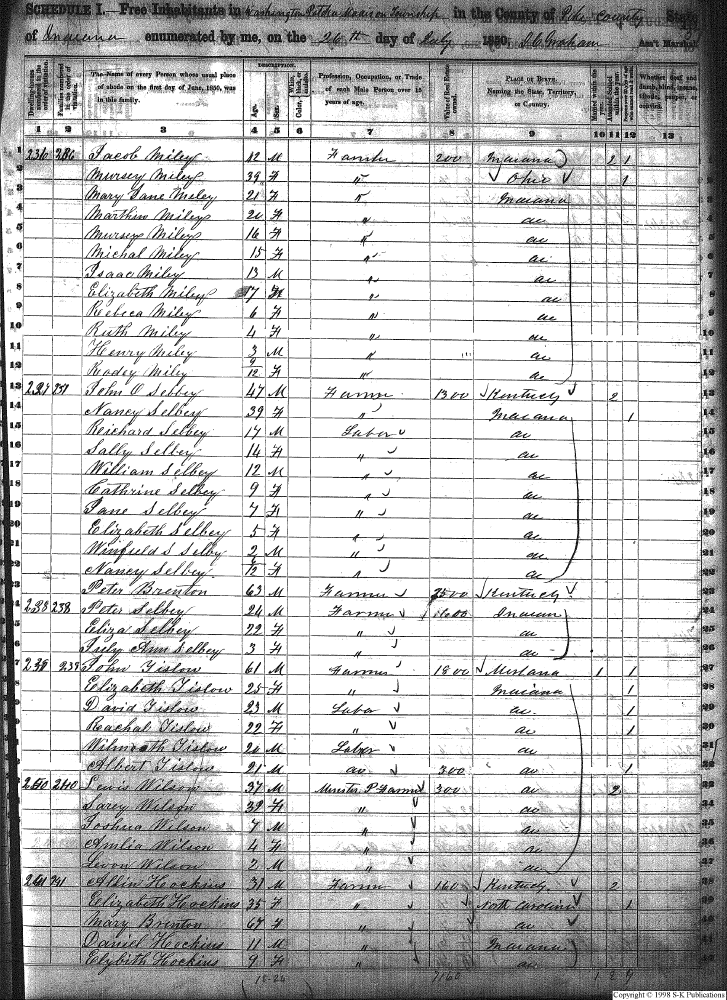 SCHEDULE I. Free Inhabitants in Washington Patoka Madison Township in the County of Pike county State
of Indiana enumerated by me, on the 26th day of July 1850. S. C. Graham Ass't Marshal
DESCRIPTION.
The Name of every Person whose usual place of abode on the first day of June, 1850, was in this family.
Age.
Sex.
Profession, Occupation, or Trade of each Male Person over 15 years of age.
Value of Real Estate owned.
PLACE OF BIRTH. Naming the State, Territory, or Country.
1 2 3 4 5 6 7 8 9 10 11 12 13
1 236 236 Jacob Miley 42 M Farmer 200 Indiana 2 1
2 Mursey Miley 39 F " Ohio 1
3 Mary Jane Miley 21 F " Indiana
4 Marthew Miley 20 F " do
5 Mursey Miley 16 F " do
6 Michal Miley 15 F " do
7 Isaac Miley 13 M " do
8 Elizabeth Miley 7 F " do
9 Rebeca Miley 6 F " do
10 Ruth Miley 4 F " do
11 Henry Miley 3 M " do
12 Rodey Miley 9/12 F " do
13 237 237 John C Selbey 47 M Farmer 1300 Kentucky 2
14 Nancy Selbey 39 F " Indiana 1
15 Reichard Selbey 17 M Labor do
16 Sally Selbey 14 F " do
17 William Selbey 12 M " do
18 Cathrine Selbey 9 F " do
19 Jane Selbey 7 F " do
20 Elizabeth Selbey 5 F " do
21 Winfield S Selby 2 M " do
22 Nancy Selbey /12 F " do
23 Peter Brenton 63 M Farmer 2500 Kentucky
24 238 238 Peter Selbey 24 M Farmer 1600 Indiana
25 Eliza Selbey 22 F " do
26 Ann Selbey 3 F " do
27 239 239 John Tislow 61 M Farmer 1800 1 1
28 Elizabeth Tislow 25 F " Indiana 1
29 David Tislow 23 M Labor do 1
30 Rachal Tislow 22 F " do 1
31 Tislow 20 M Labor do
32 Albert Tislow 21 M do 300 do 1
33 240 240 Lewis Wilson 37 M Minister P Farmer 300 do 2
34 Sarey Wilson 39 F " do
35 Joshua Wilson 7 M " do
36 Amlia Wilson 4 F " do
37 Levon Wilson 2 M " do
38 241 241 Albin Hockins 31 M Farmer 160 Kentucky 2
39 Elizabeth Hockins 35 F " North Carolina 1
40 Mary Brenton 67 F " do
41 Daniel Hockins 11 M " Indiana
42 Elybith Hockins 9 F " do
18-24 7160 1 2 9
Copyright © 1998 S-K Publications